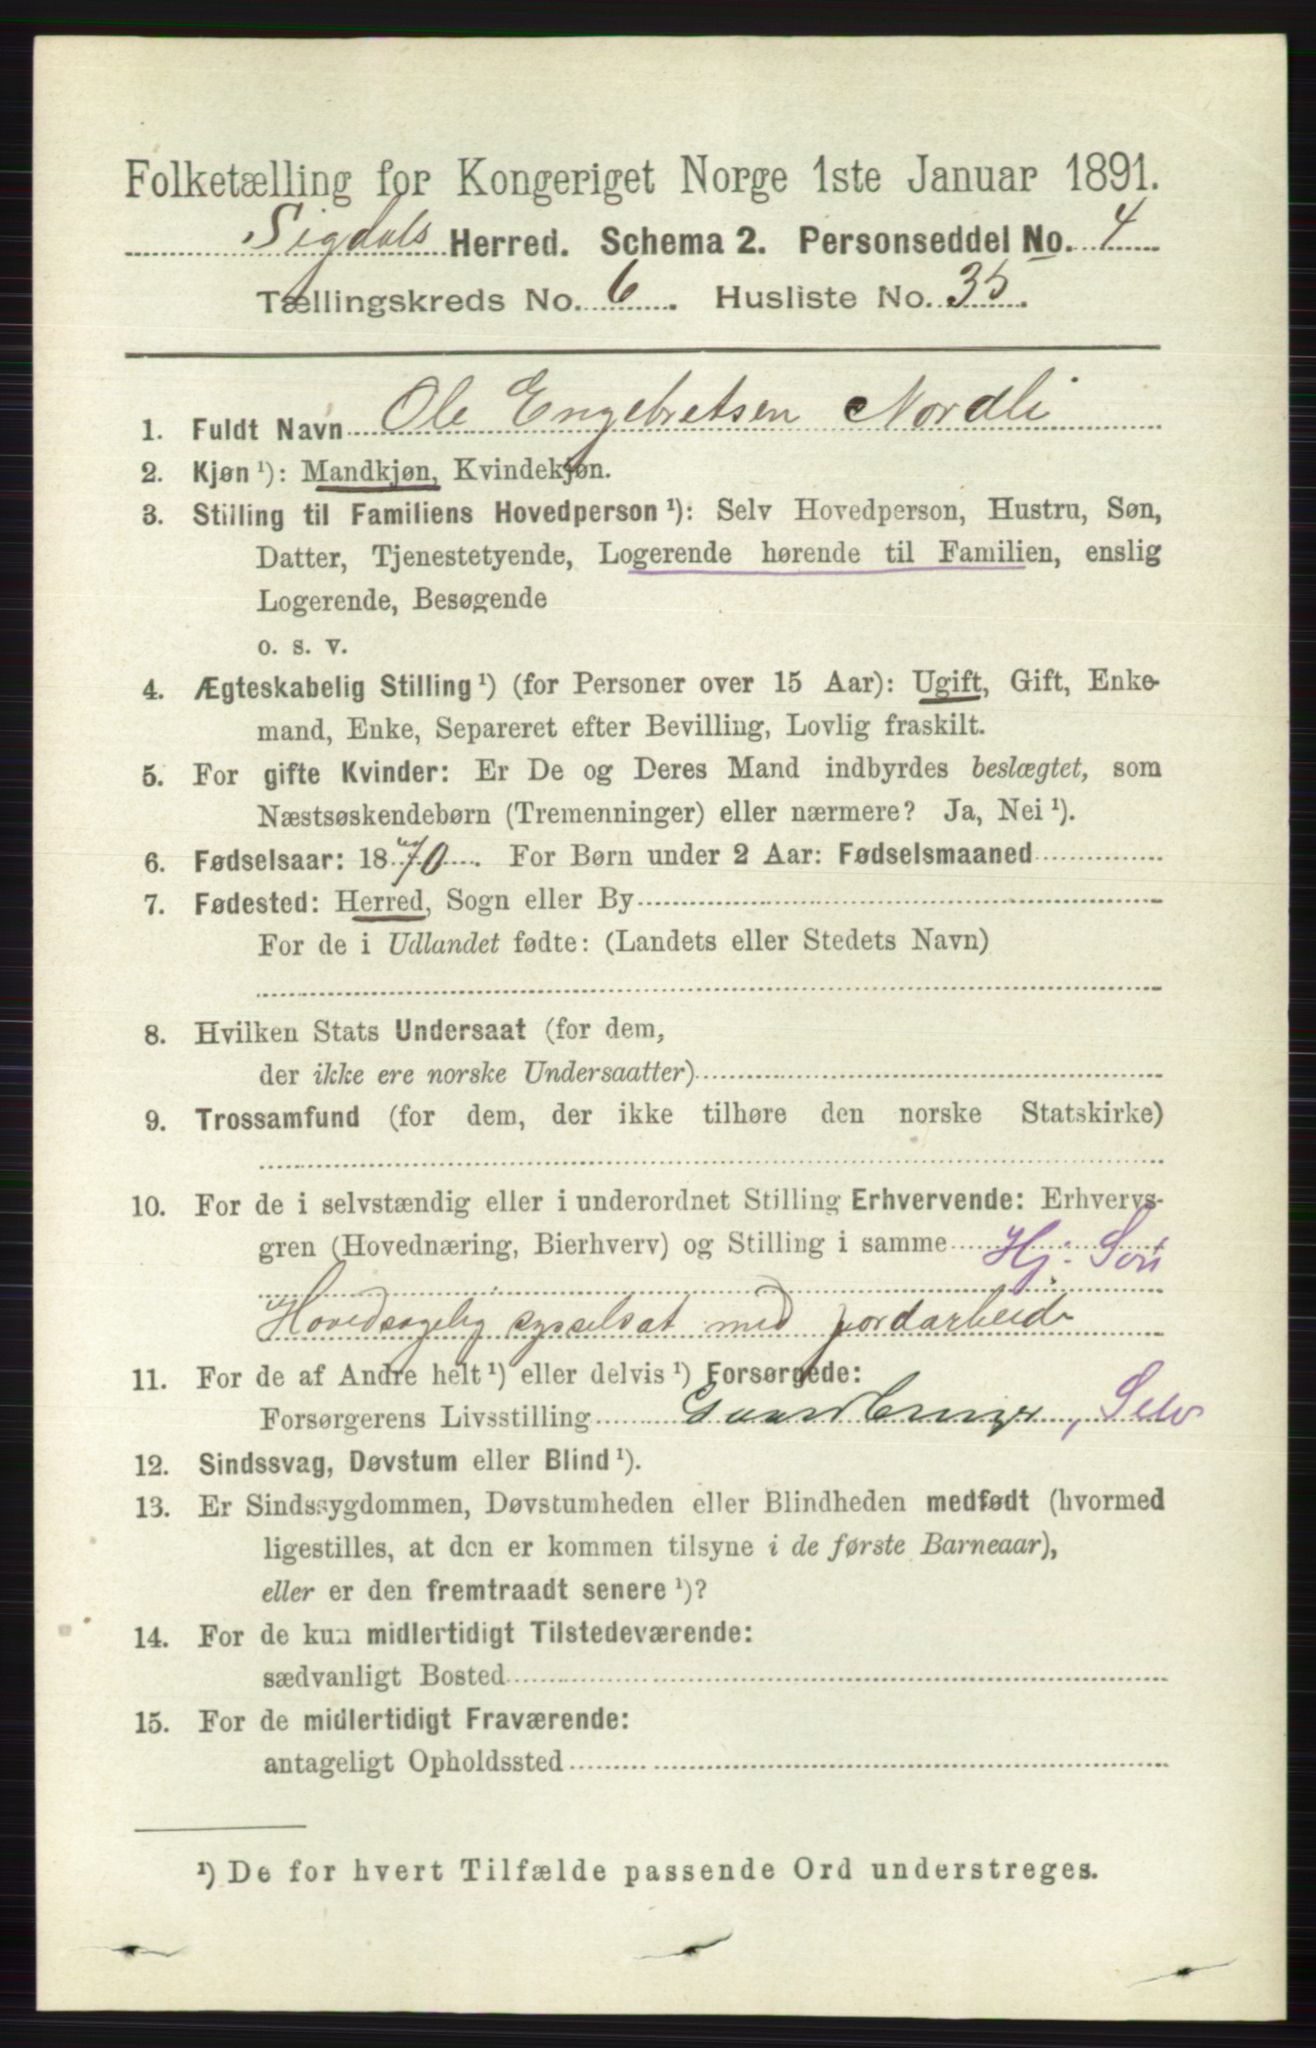 Folketælling for Kongeriget Norge 1ste Januar 1891.
Sigdals Herred. Schema 2. Personseddel No. 4
Tællingskreds No. 6. Husliste No. 35.
1. Fuldt Navn Ole Engebretsen Nordli
2. Kjøn ¹): Mandkjøn, Kvindekjøn.
3. Stilling til Familiens Hovedperson ¹): Selv Hovedperson, Hustru, Søn,
Datter, Tjenestetyende, Logerende hørende til Familien, enslig
Logerende, Besøgende
o. s. v.
4. Ægteskabelig Stilling ¹) (for Personer over 15 Aar): Ugift, Gift, Enke-
mand, Enke, Separeret efter Bevilling, Lovlig fraskilt.
5. For gifte Kvinder: Er De og Deres Mand indbyrdes beslægtet, som
Næstsøskendebørn (Tremenninger) eller nærmere? Ja, Nei ¹).
6. Fødselsaar: 1870. For Børn under 2 Aar: Fødselsmaaned
7. Fødested: Herred, Sogn eller By
For de i Udlandet fødte: (Landets eller Stedets Navn)
8. Hvilken Stats Undersaat (for dem,
der ikke ere norske Undersaatter)
9. Trossamfund (for dem, der ikke tilhøre den norske Statskirke)
10. For de i selvstændig eller i underordnet Stilling Erhvervende: Erhvervs-
gren (Hovednæring, Bierhverv) og Stilling i samme Hj. Søn
Hovedsagelig sysselsat med jordarbeide
11. For de af Andre helt ¹) eller delvis ¹) Forsørgede:
Forsørgerens Livsstilling Gaardbruger, Selv
12. Sindssvag, Døvstum eller Blind ¹).
13. Er Sindssygdommen, Døvstumheden eller Blindheden medfødt (hvormed
ligestilles, at den er kommen tilsyne i de første Barneaar),
eller er den fremtraadt senere ¹)?
14. For de kun midlertidigt Tilstedeværende:
sædvanligt Bosted
15. For de midlertidigt Fraværende:
antageligt Opholdssted
¹) De for hvert Tilfælde passende Ord understreges.